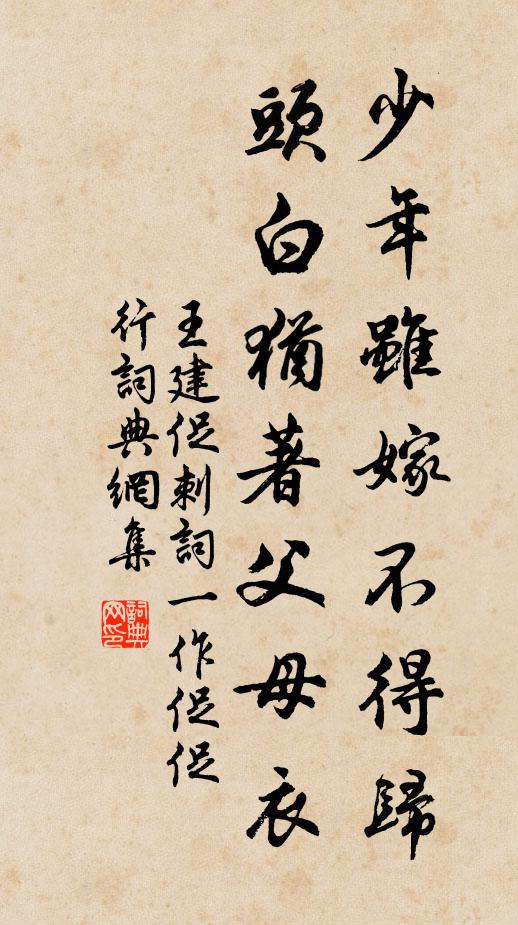 少年雖嫁不得歸
頭白猶著父母衣
王建促刺詞一作促促
行詞典網集
詞典网印